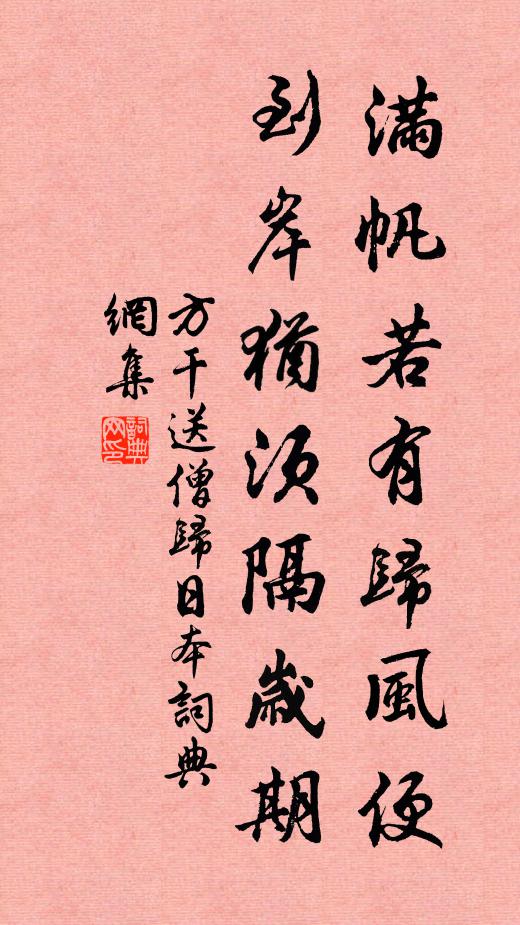 滿帆若有歸風便
到岸猶須隔歲期
方干送僧歸日本詞典
網集
詞典
网印